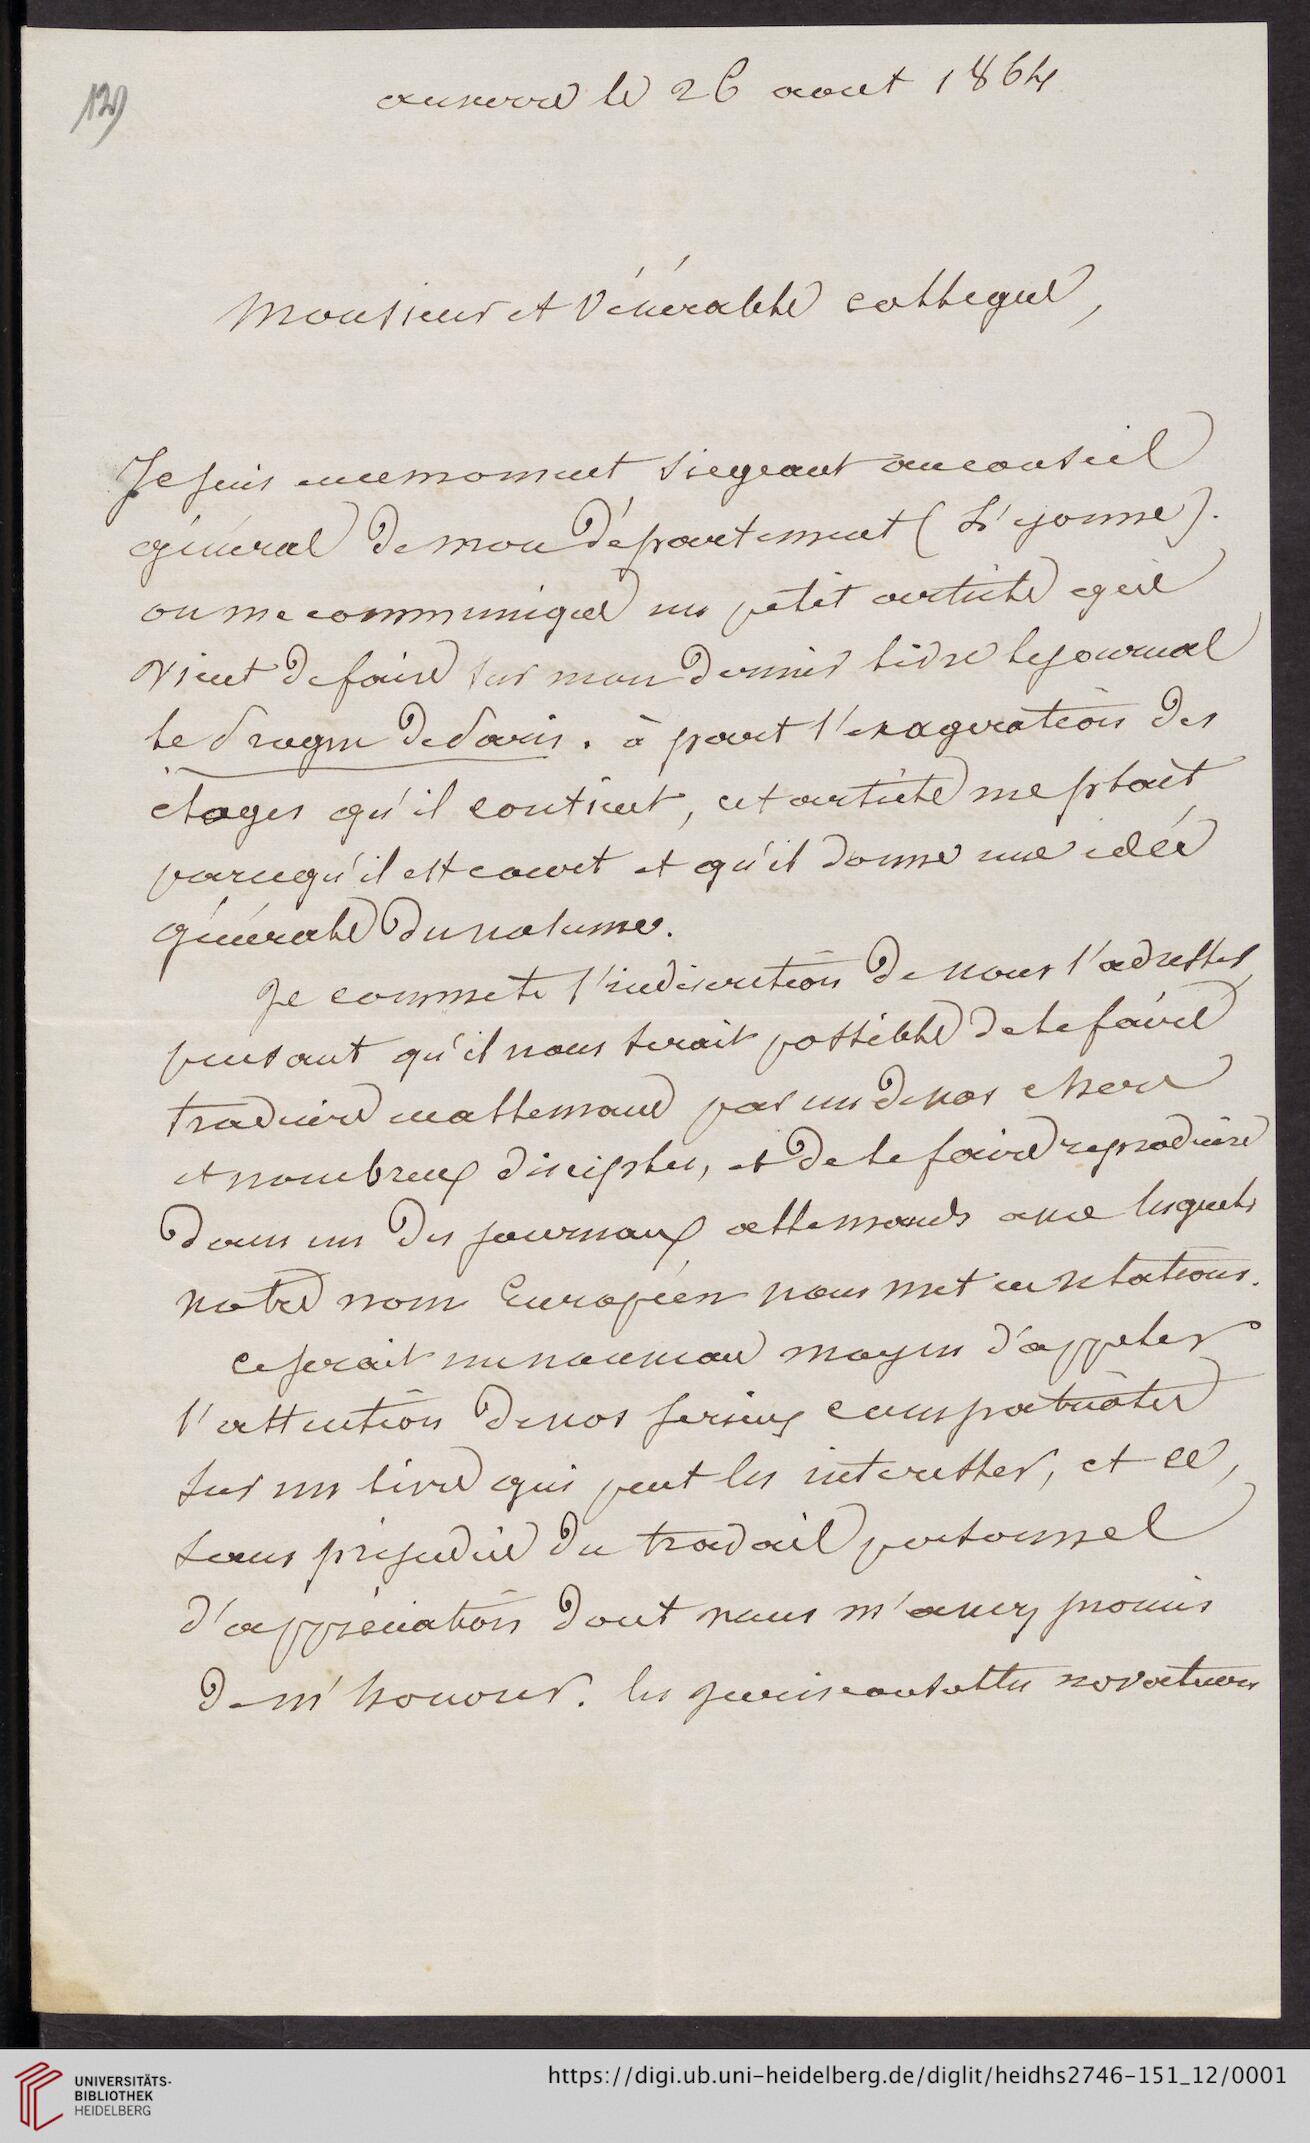 129
auxerre le 26 aout 1864
Monsieur et vénérable collegue,
Je suis en ce moment siegeant au conseil
général de mon département (L'yonne).
on me communique un petit article que
vient de faire sur mon dernier livre le journal
le Progrès de Paris. à part l'exageration des
éloges qu'il contient, cet article me plaît
parcequ'il est court et qu'il donne une idée
générale du volume.
Je commets l'indiscretion de vous l'adresser,
pensant qu'il vous serait possible de le faire
traduire en allemand par un de vos chers
et nombreux disciples, et de le faire reproduire
dans un des journaux allemands avec lesquels
votre nom Européen vous met en relations.
ce serait un nouveau moyen d'appeler
l'attention de vos serieux compatriotes
sur un livre qui peut les interesser, et ce,
sans prejudice du travail personnel
d'appréciation dont vous m'avez promis
de m'honorer. les jurisconsultes novateurs
UNIVERSITÄTS-
BIBLIOTHEK
HEIDELBERG
https://digi.ub.uni-heidelberg.de/diglit/heidhs2746-151_12/0001